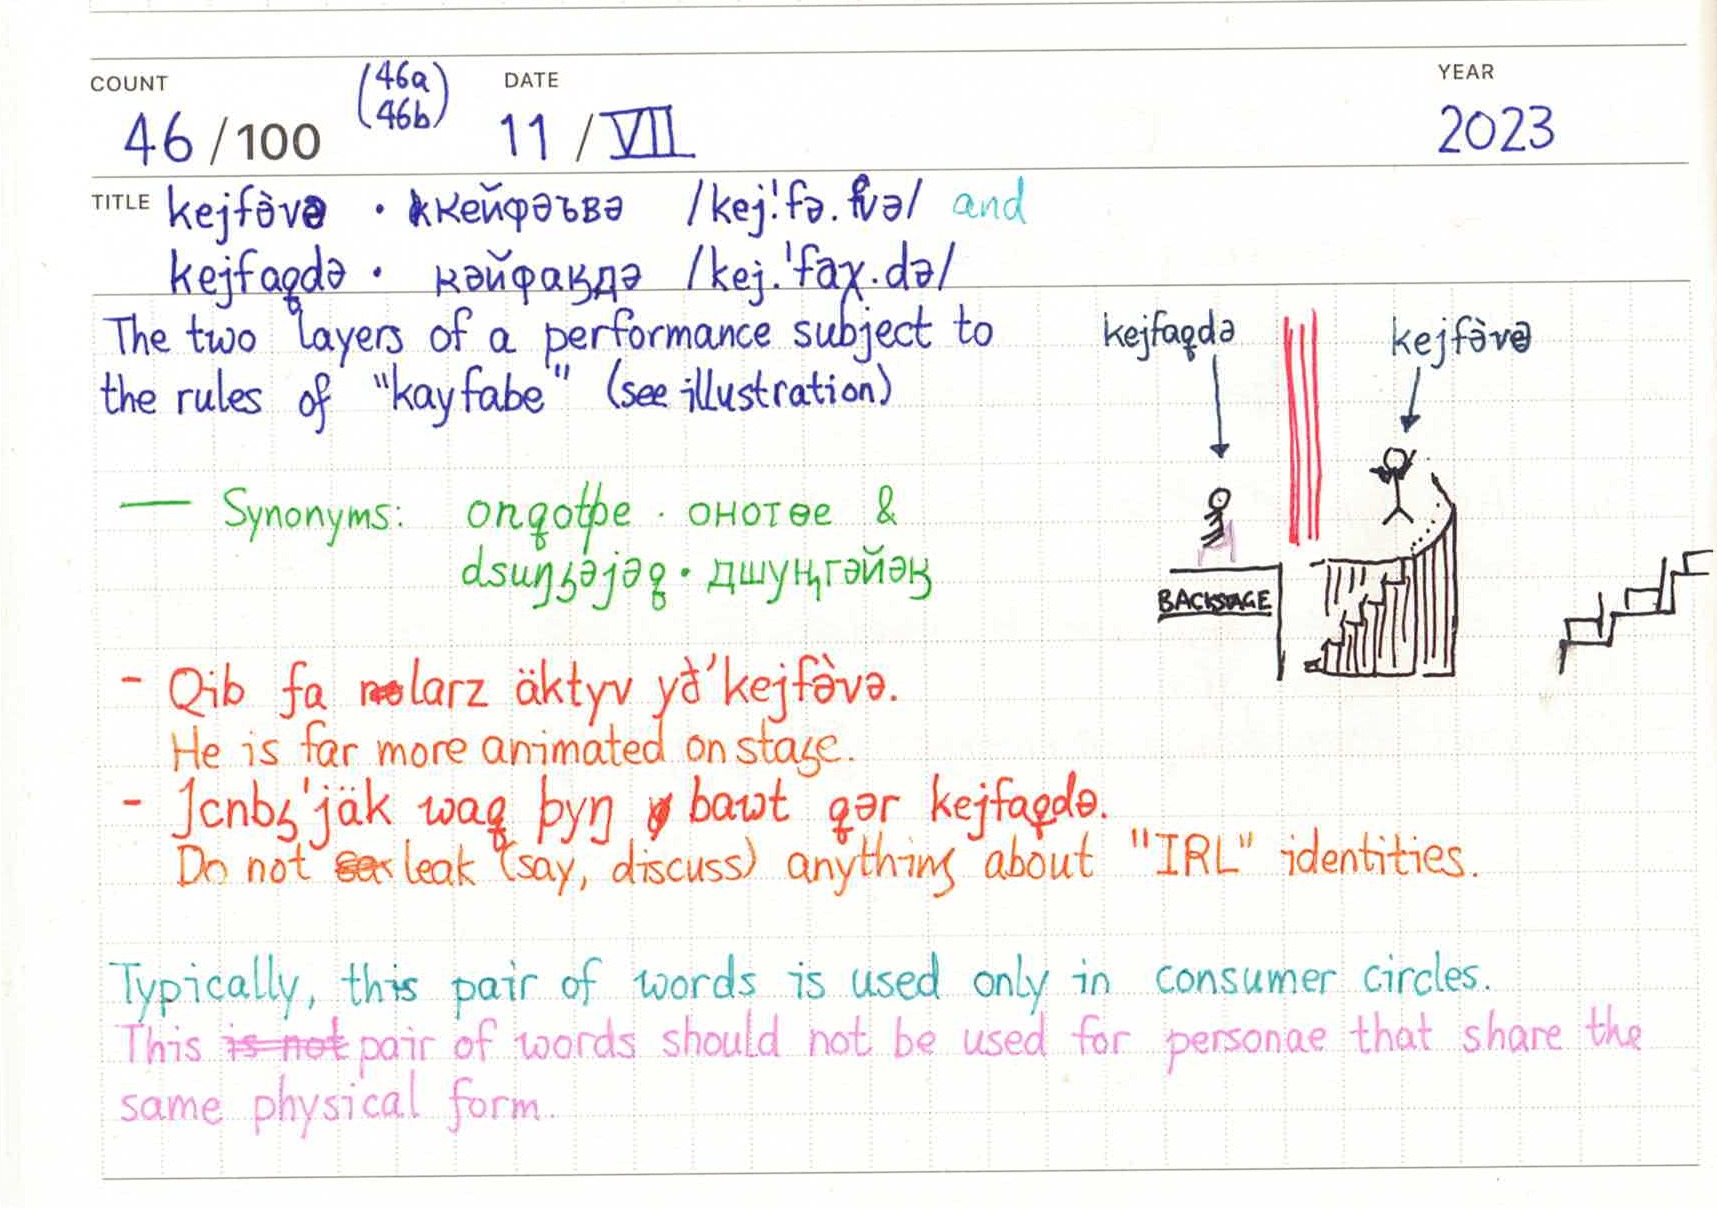 COUNT (46a DATE YEAR
46/100 46b) 11/VII 2023
TITLE kejfə̀və · кейфәъвә /kej.ˈfə.və/ and
kejfaqdə · кәйфаҕдә /kej.ˈfaχ.də/
The two layers of a performance subject to
the rules of "kayfabe" (see illustration)
kejfaqdə kejfə̀və
BACKSTAGE
— Synonyms: onqoþe · онотѳе &
dsuŋӡəjəq · дшуңгәйәҕ
- Qib fa larz äktyv yð'kejfə̀və.
He is far more animated on stage.
- Jcnbӡ'jäk waq þyŋ bawt qər kejfaqdə.
Do not leak (say, discuss) anything about "IRL" identities.
Typically, this pair of words is used only in consumer circles.
This is not pair of words should not be used for personae that share the
same physical form.